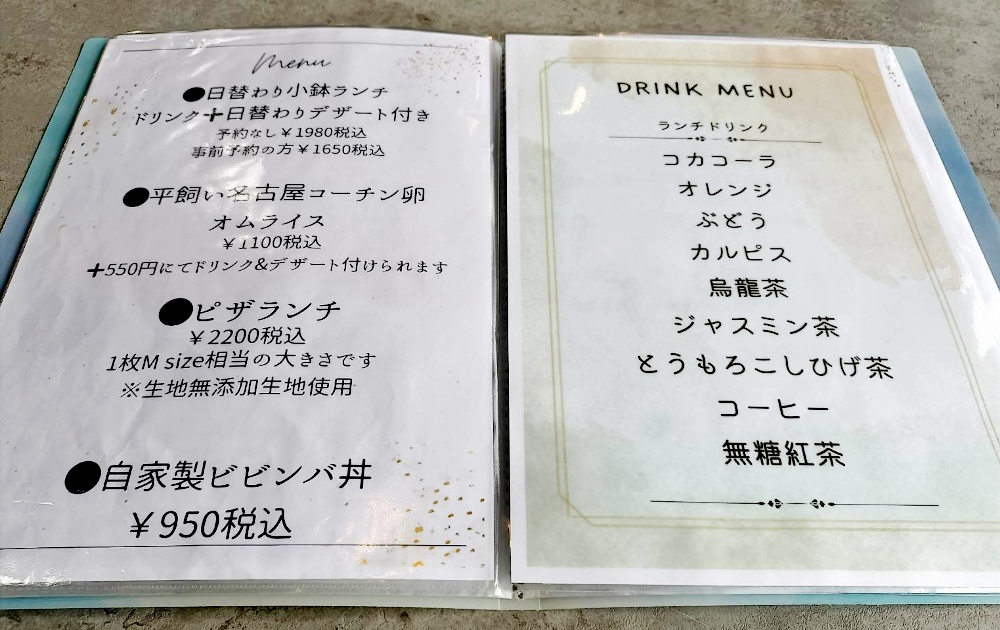 Menu
●日替わり小鉢ランチ
ドリンク+日替わりデザート付き
予約なし¥1980税込
事前予約の方¥1650税込
●平飼い名古屋コーチン卵
オムライス
¥1100税込
+550円にてドリンク&デザート付けられます
●ピザランチ
¥2200税込
1枚M size相当の大きさです
※生地無添加生地使用
●自家製ビビンバ丼
¥950税込
DRINK MENU
ランチドリンク
コカコーラ
オレンジ
ぶどう
カルピス
烏龍茶
ジャスミン茶
とうもろこしひげ茶
コーヒー
無糖紅茶